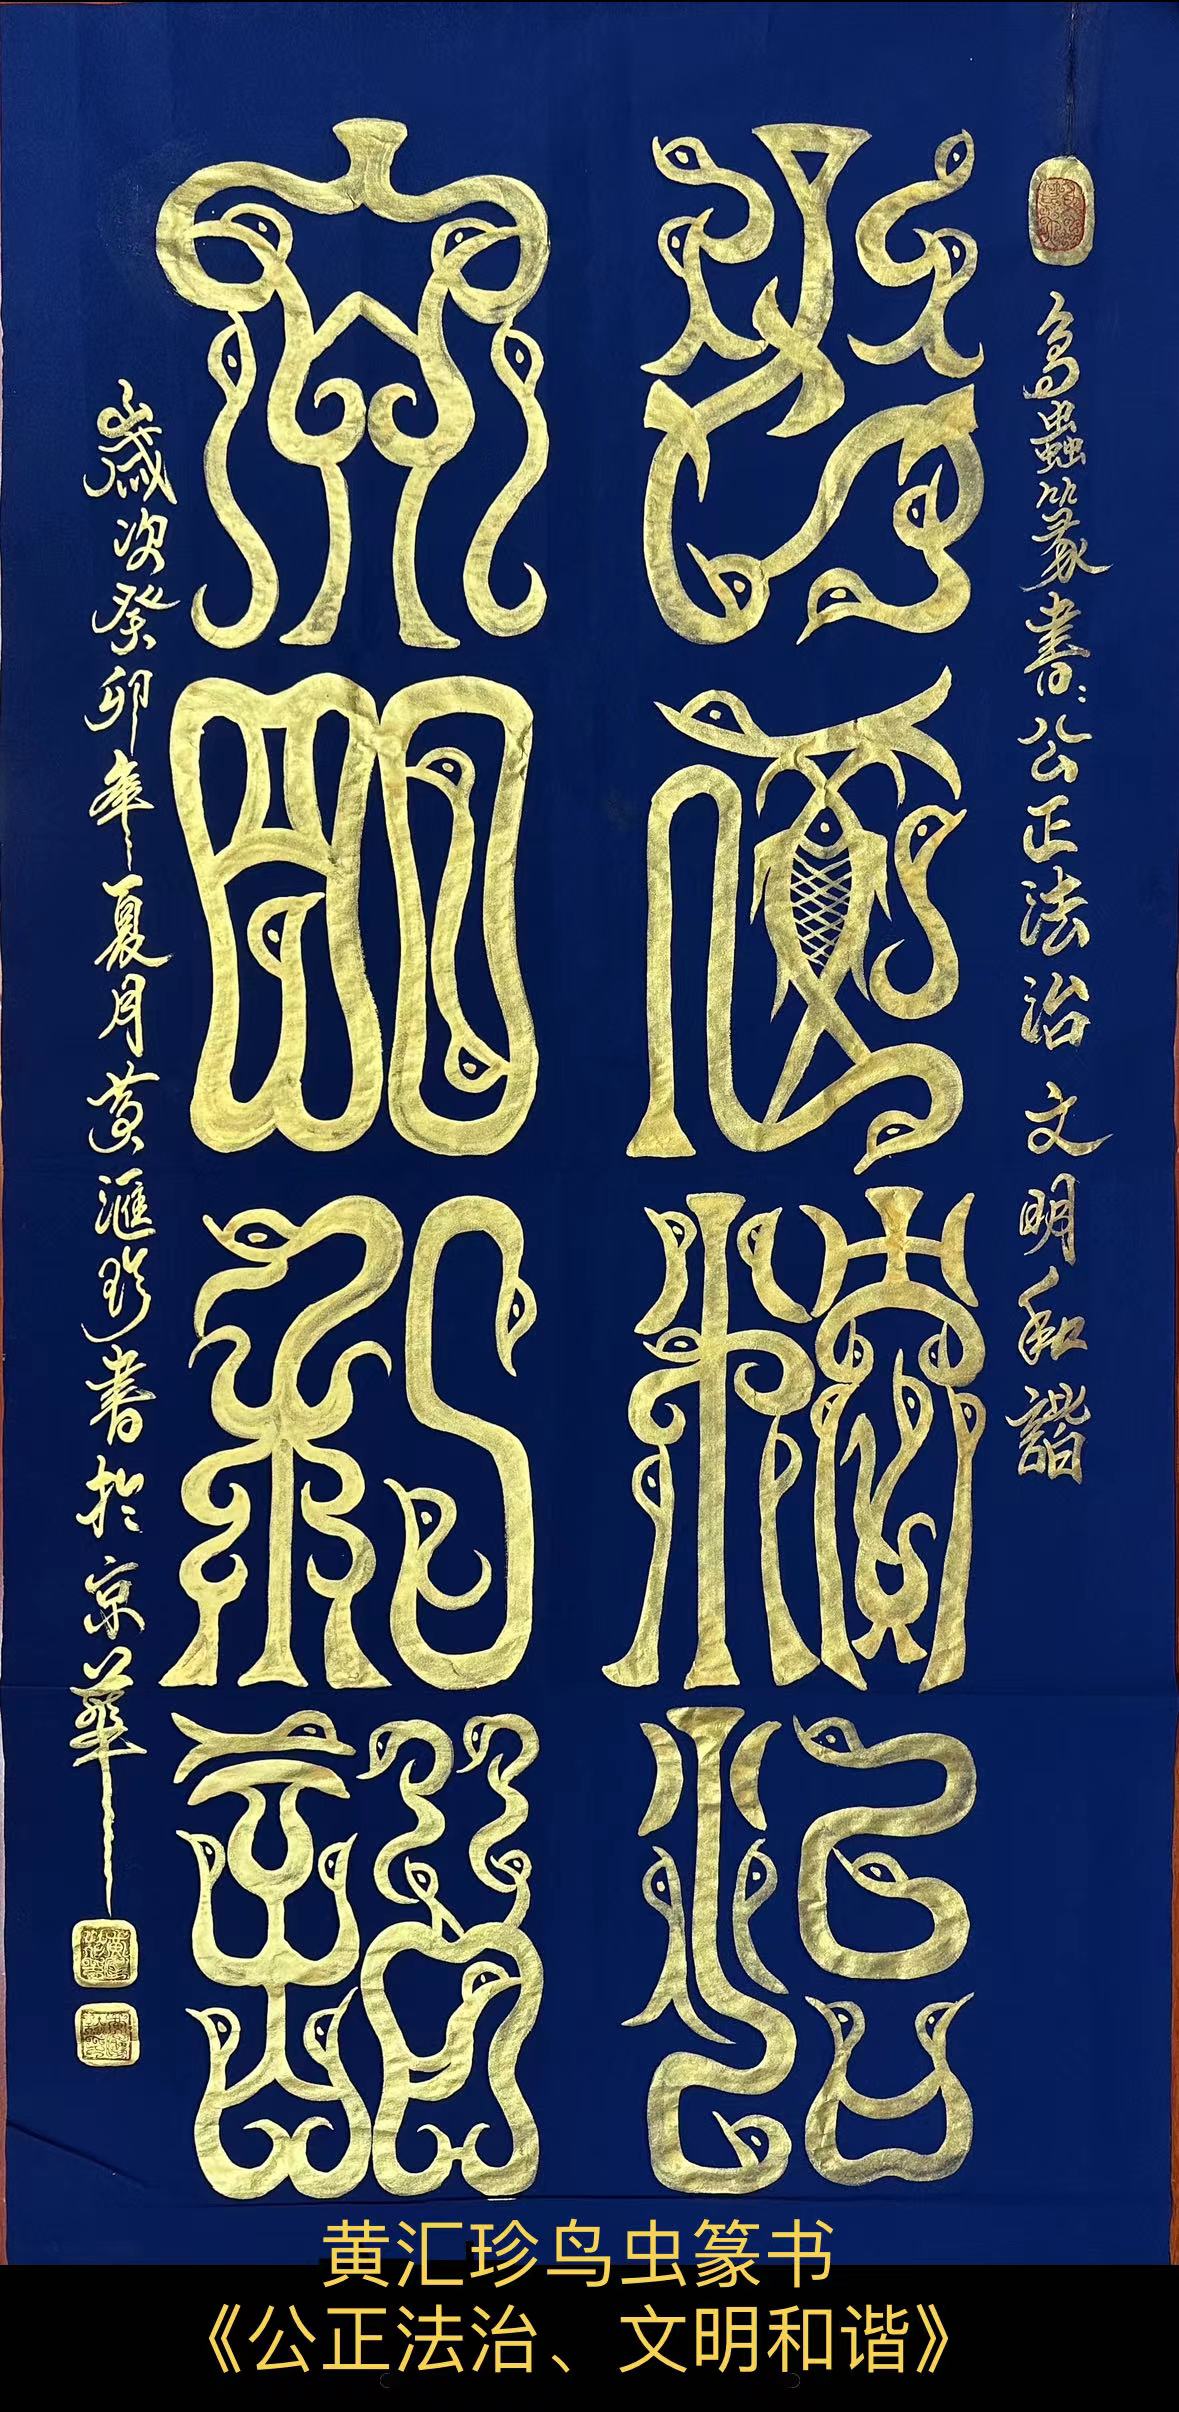 鳥蟲篆書：公正法治 文明和諧
公正法治
文明和諧
歲次癸卯年夏月黃滙珍書於京華
黄汇珍鸟虫篆书
《公正法治、文明和谐》